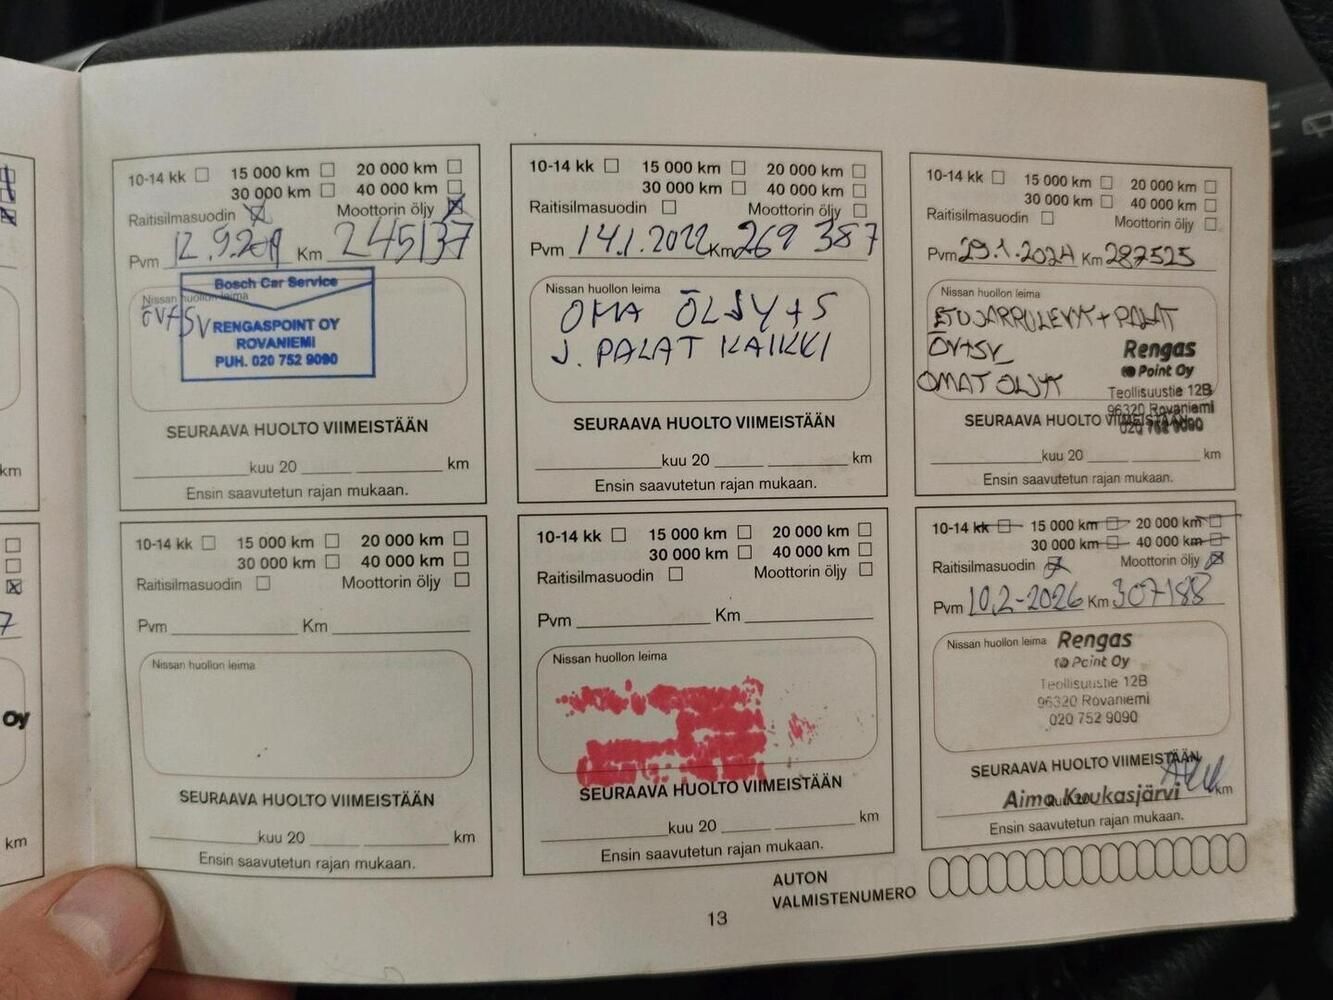 10-14 kk 15 000 km 20 000 km
30 000 km 40 000 km
Raitisilmasuodin Moottorin öljy
Pvm 12.9.2019 Km 245137
Nissan huollon leima
ÖV+SV
Bosch Car Service
RENGASPOINT OY
ROVANIEMI
PUH. 020 752 9090
SEURAAVA HUOLTO VIIMEISTÄÄN
kuu 20 km
Ensin saavutetun rajan mukaan.
10-14 kk 15 000 km 20 000 km
30 000 km 40 000 km
Raitisilmasuodin Moottorin öljy
Pvm 14.1.2022 Km 269 387
Nissan huollon leima
OMA ÖLJY+S
J. PALAT KAIKKI
SEURAAVA HUOLTO VIIMEISTÄÄN
kuu 20 km
Ensin saavutetun rajan mukaan.
10-14 kk 15 000 km 20 000 km
30 000 km 40 000 km
Raitisilmasuodin Moottorin öljy
Pvm 29.1.2024 Km 287525
Nissan huollon leima
ETUJARRULEVYT+PALAT
ÖV+SV
OMAT ÖLJYT
Rengas
Point Oy
Teollisuustie 12B
96320 Rovaniemi
020 752 9090
SEURAAVA HUOLTO VIIMEISTÄÄN
kuu 20 km
Ensin saavutetun rajan mukaan.
10-14 kk 15 000 km 20 000 km
30 000 km 40 000 km
Raitisilmasuodin Moottorin öljy
Pvm Km
Nissan huollon leima
SEURAAVA HUOLTO VIIMEISTÄÄN
kuu 20 km
Ensin saavutetun rajan mukaan.
10-14 kk 15 000 km 20 000 km
30 000 km 40 000 km
Raitisilmasuodin Moottorin öljy
Pvm Km
Nissan huollon leima
SEURAAVA HUOLTO VIIMEISTÄÄN
kuu 20 km
Ensin saavutetun rajan mukaan.
10-14 kk 15 000 km 20 000 km
30 000 km 40 000 km
Raitisilmasuodin Moottorin öljy
Pvm 10.2-2026 Km 307188
Nissan huollon leima
Rengas
Point Oy
Teollisuustie 12B
96320 Rovaniemi
020 752 9090
SEURAAVA HUOLTO VIIMEISTÄÄN
Aimo Koukasjärvi
km
Ensin saavutetun rajan mukaan.
AUTON
VALMISTENUMERO
13
km
7
Oy
km